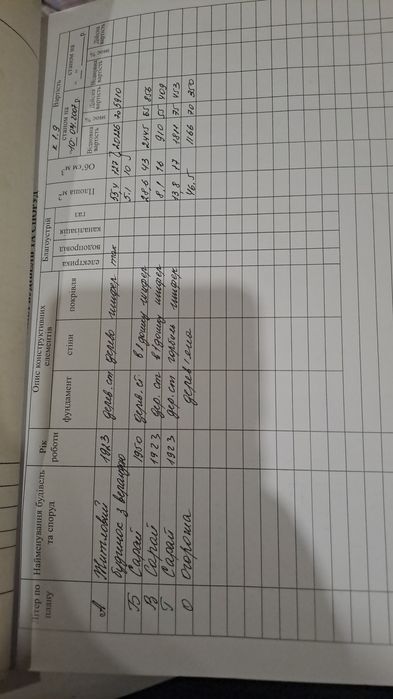 Літер по плану
Найменування будівель та споруд
Рік роботи
Опис конструктивних елементів
фундамент
стіни
покрівля
Благоустрій
електрика
водопровід
каналізація
газ
Площа м²
Об'єм м³
Вартість
к 1,9
станом на
10.04.2007 р.
станом на
Відновна вартість
% знос
Дійсна вартість
Відновна вартість
% знос
Дійсна вартість
А Житловий 1923 дерев.ст дерево шифер так 55,4 127 20226 70 5910
будинок з верандою 5.1 10
Б Сарай 1950 дерев.ст в/дошку шифер 28.6 43 2445 65 856
В Сарай 1923 дер.ст в/дошку шифер 8,1 16 910 55 409
Г Сарай 1923 дер.ст горбиль шифер 13.8 17 1811 75 453
О Огорожа дерев'яна 46,5 1166 70 350